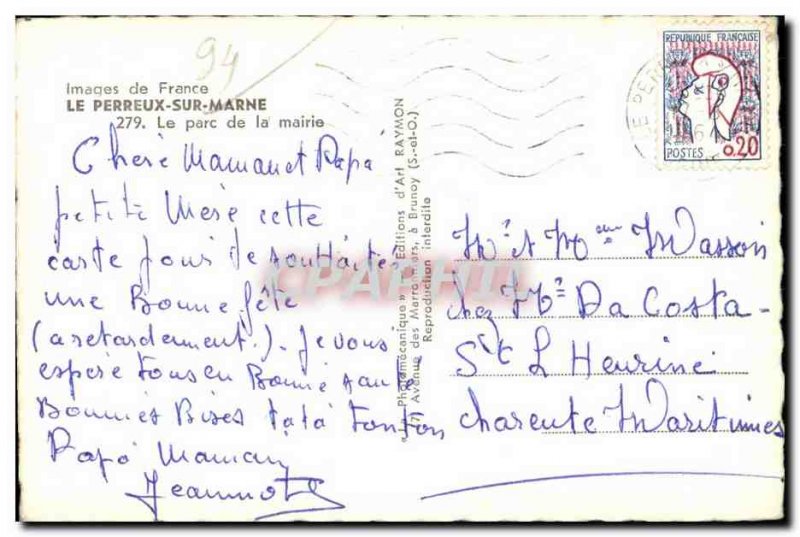 94
Images de France
LE PERREUX-SUR-MARNE
279. Le parc de la mairie
Chère Maman et Papa
petite Mère cette
carte pour te souhaiter
une Bonne fête
(a retardement.). Je vous
espère tous en Bonne santé
Bonnes Bises tata Tonton
Papa Maman
Jeannot
"Photomécanique" Editions d'Art RAYMON
Avenue des Marronniers, à Brunoy (S.-et-O.)
Reproduction interdite
CPAPHIL
REPUBLIQUE FRANÇAISE
POSTES 0,20
LE PERR
Mr et Mme Masson
chez Mr Da Costa
St L Heurine
Charente Maritimes